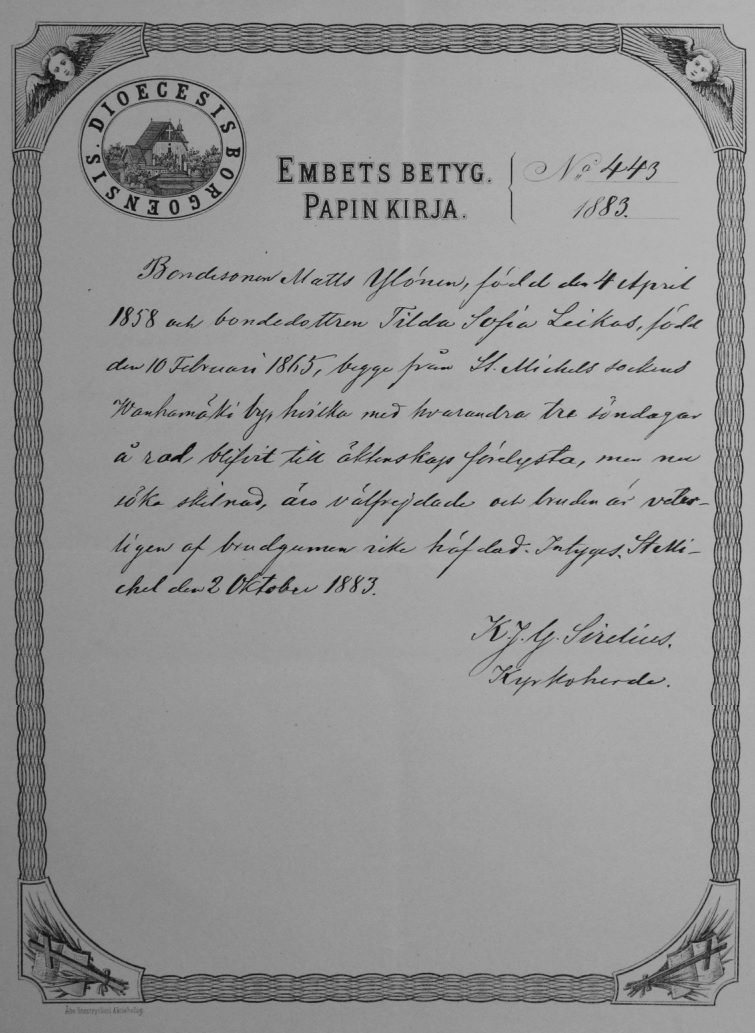 DIOECESIS BORGOENSIS.
EMBETS BETYG.
PAPIN KIRJA.
No. 443
1883.
Bondesonen Matts Ylönen, född den 4 April
1858 och bondedottren Tilda Sofia Leikas, född
den 10 Februari 1865, begge från St. Michels sockens
Wanhamäki by, hvilka med hvarandra tre söndagar
å rad blifvit till äktenskap förelysta, men nu
söka skilnad, äro välfrejdade och bruden är veter-
ligen af brudgumen icke häfdad. Intygas, St Mi-
chel den 2 Oktober 1883.
K. J. G. Sirelius.
Kyrkoherde.